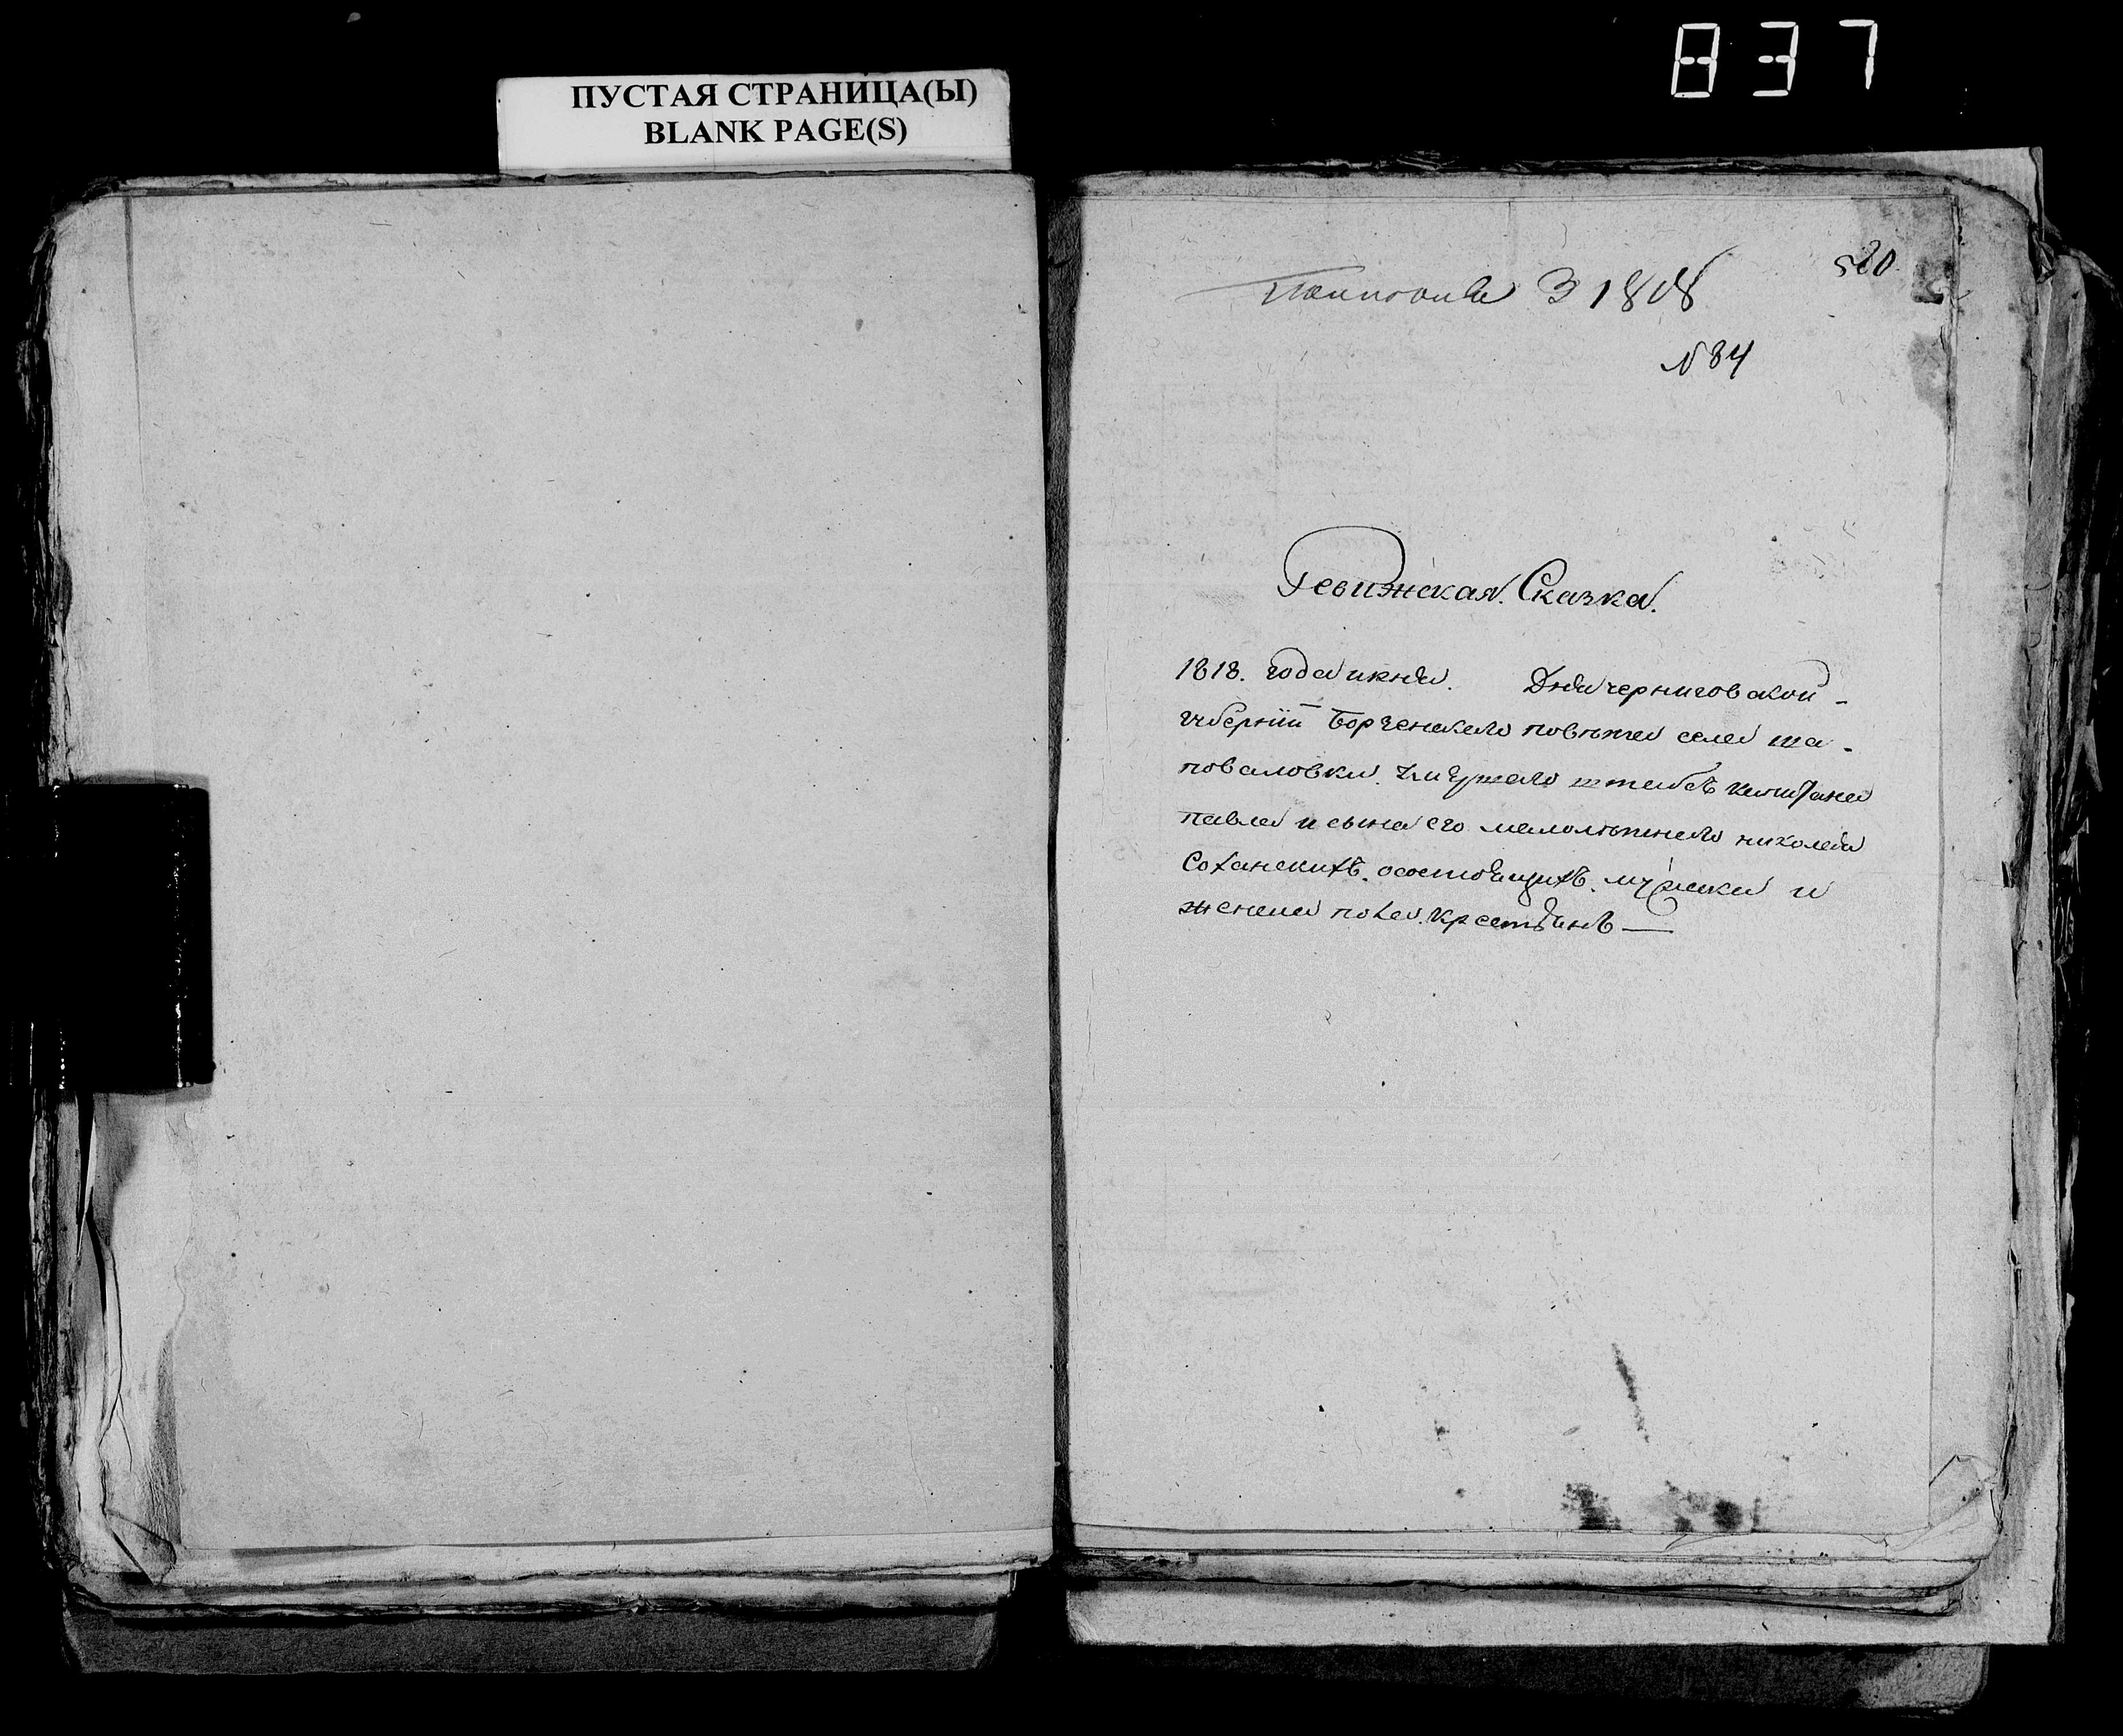 837
ПУСТАЯ СТРАНИЦА(Ы)
BLANK PAGE(S)
520
3 1818
№ 84
Ревижская Сказка.
1818. года июня. Дня черниговской -
губернии Борзенского повета села ша-
поваловки. умершего штабсъ капитана
павла и сына его малолетнего николая
Соханскихъ. осостоящихъ. мужеска и
женска пола. крестьянъ —